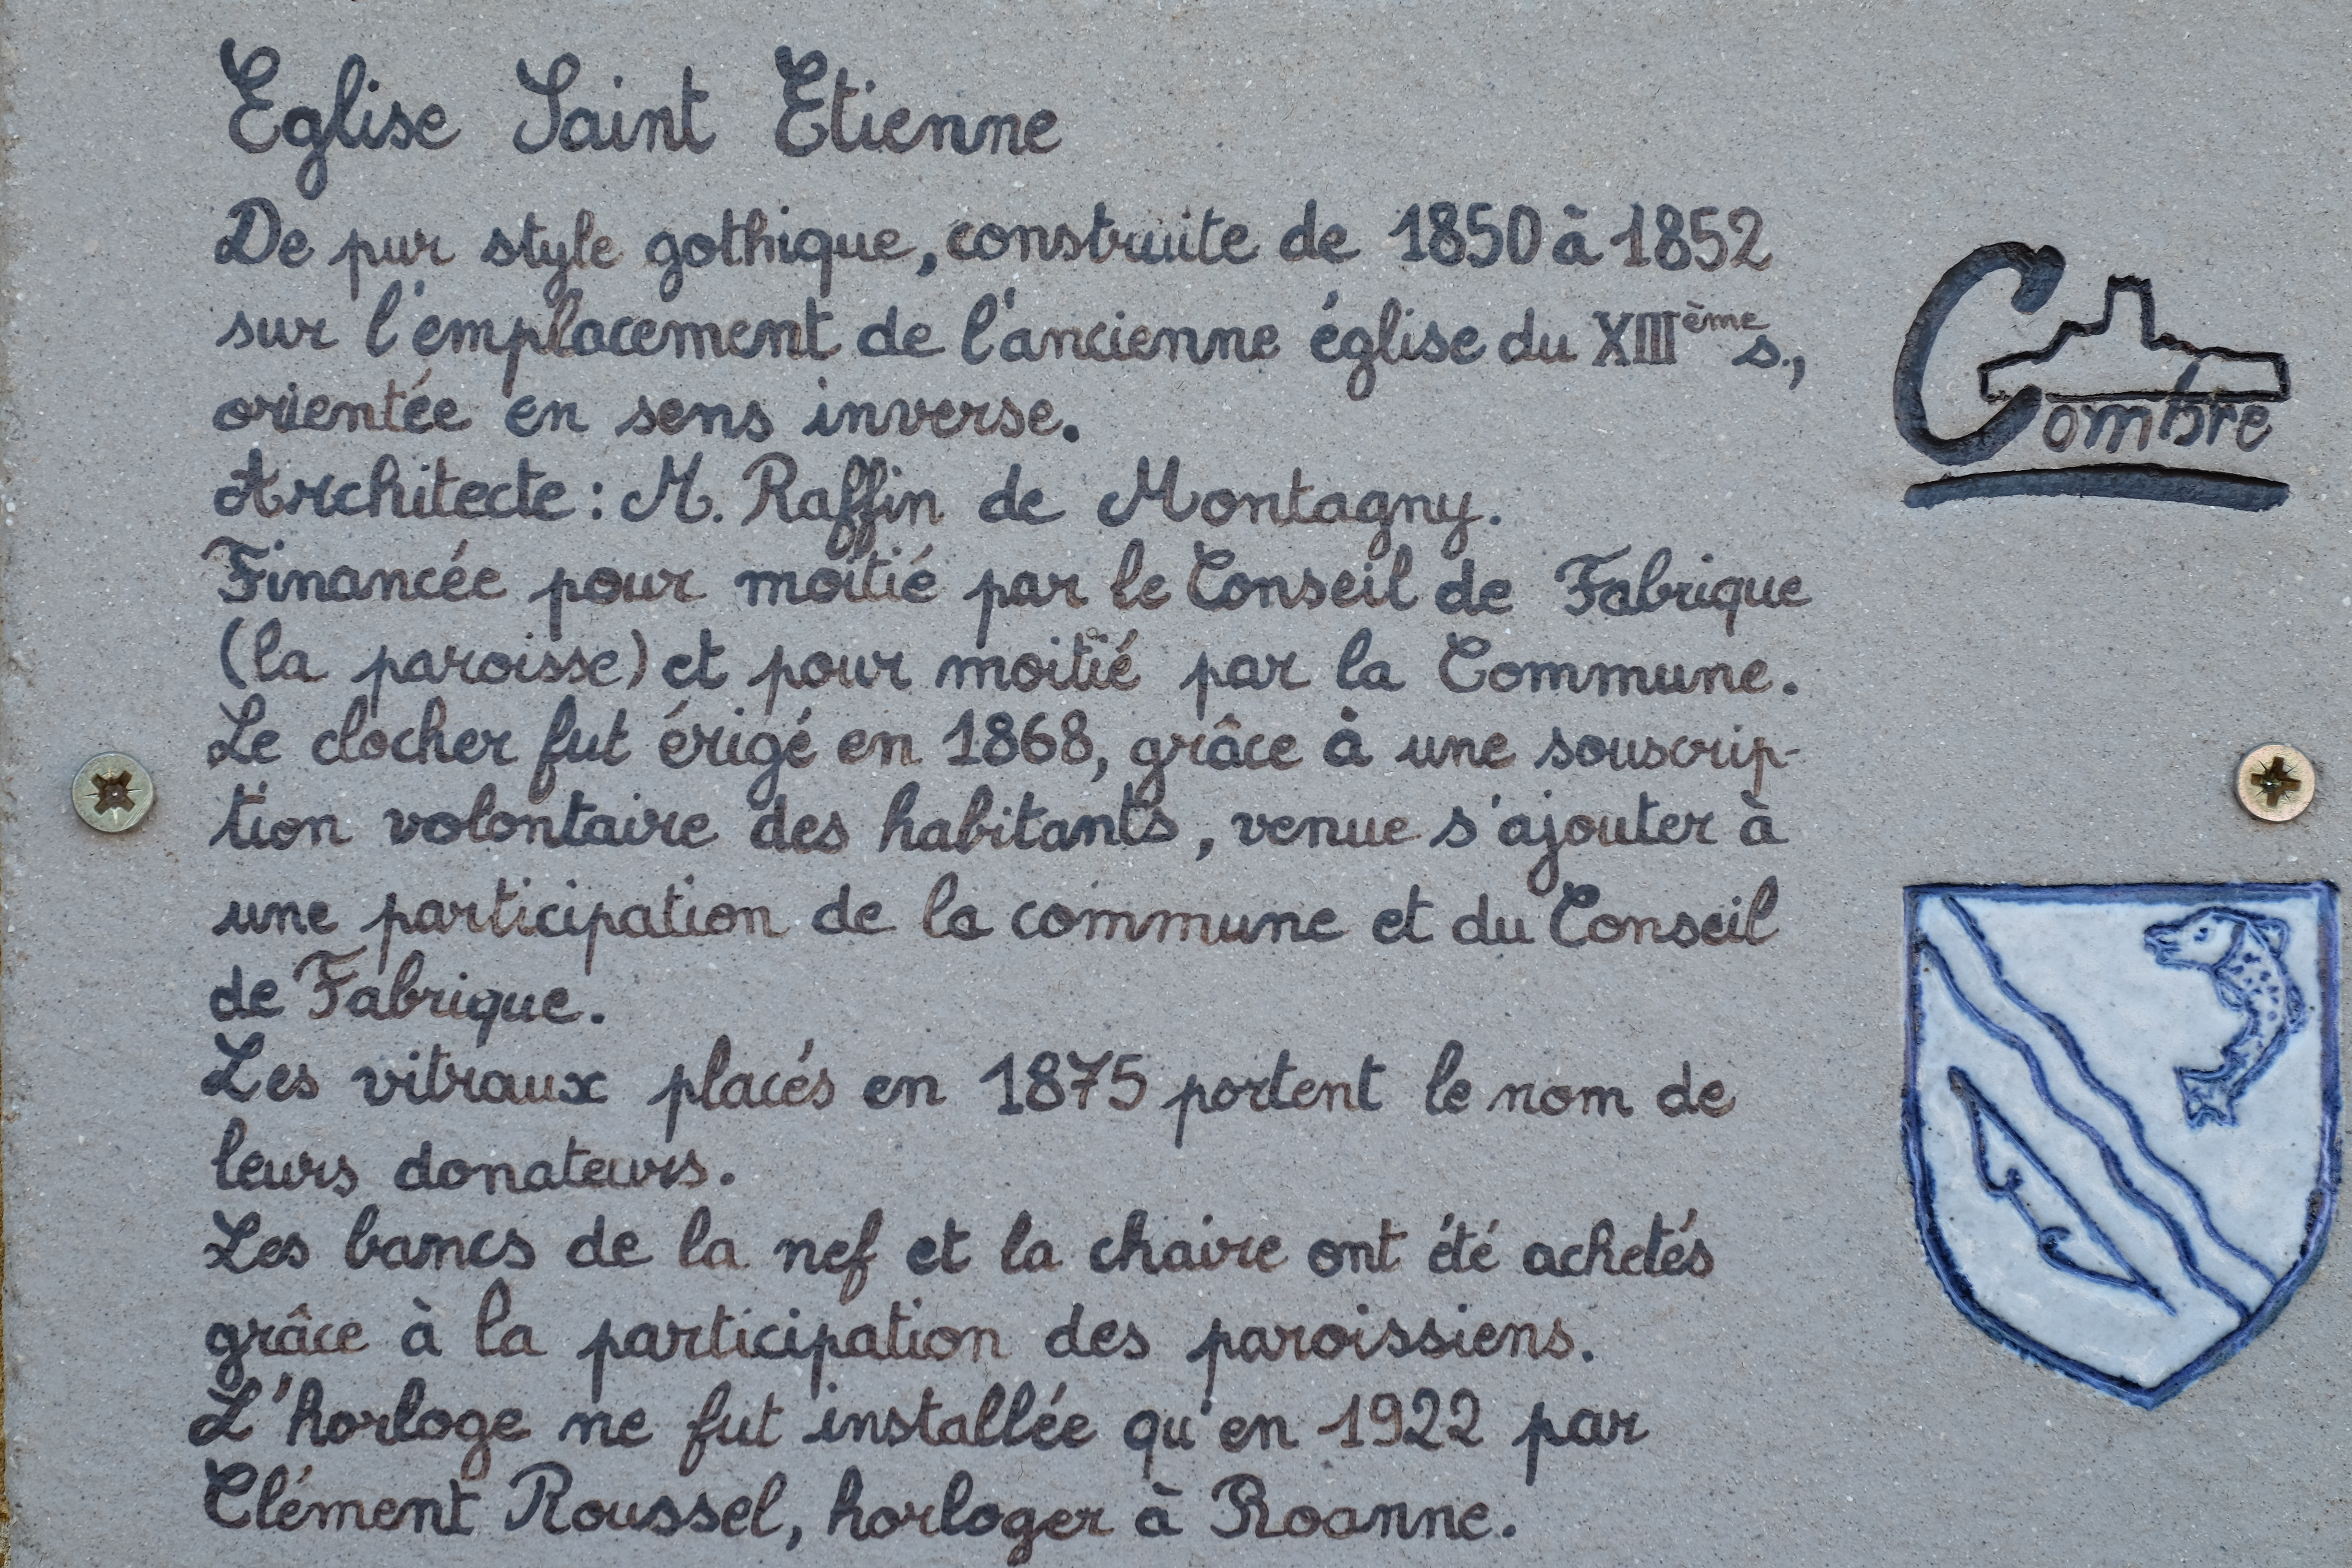 Eglise Saint Etienne
De pur style gothique, construite de 1850 à 1852
sur l'emplacement de l'ancienne église du XIIIème s.,
orientée en sens inverse.
Architecte : M. Raffin de Montagny.
Financée pour moitié par le Conseil de Fabrique
(la paroisse) et pour moitié par la Commune.
Le clocher fut érigé en 1868, grâce à une souscrip-
tion volontaire des habitants, venue s'ajouter à
une participation de la commune et du Conseil
de Fabrique.
Les vitraux placés en 1875 portent le nom de
leurs donateurs.
Les bancs de la nef et la chaire ont été achetés
grâce à la participation des paroissiens.
L'horloge ne fut installée qu'en 1922 par
Clément Roussel, horloger à Roanne.
Combre